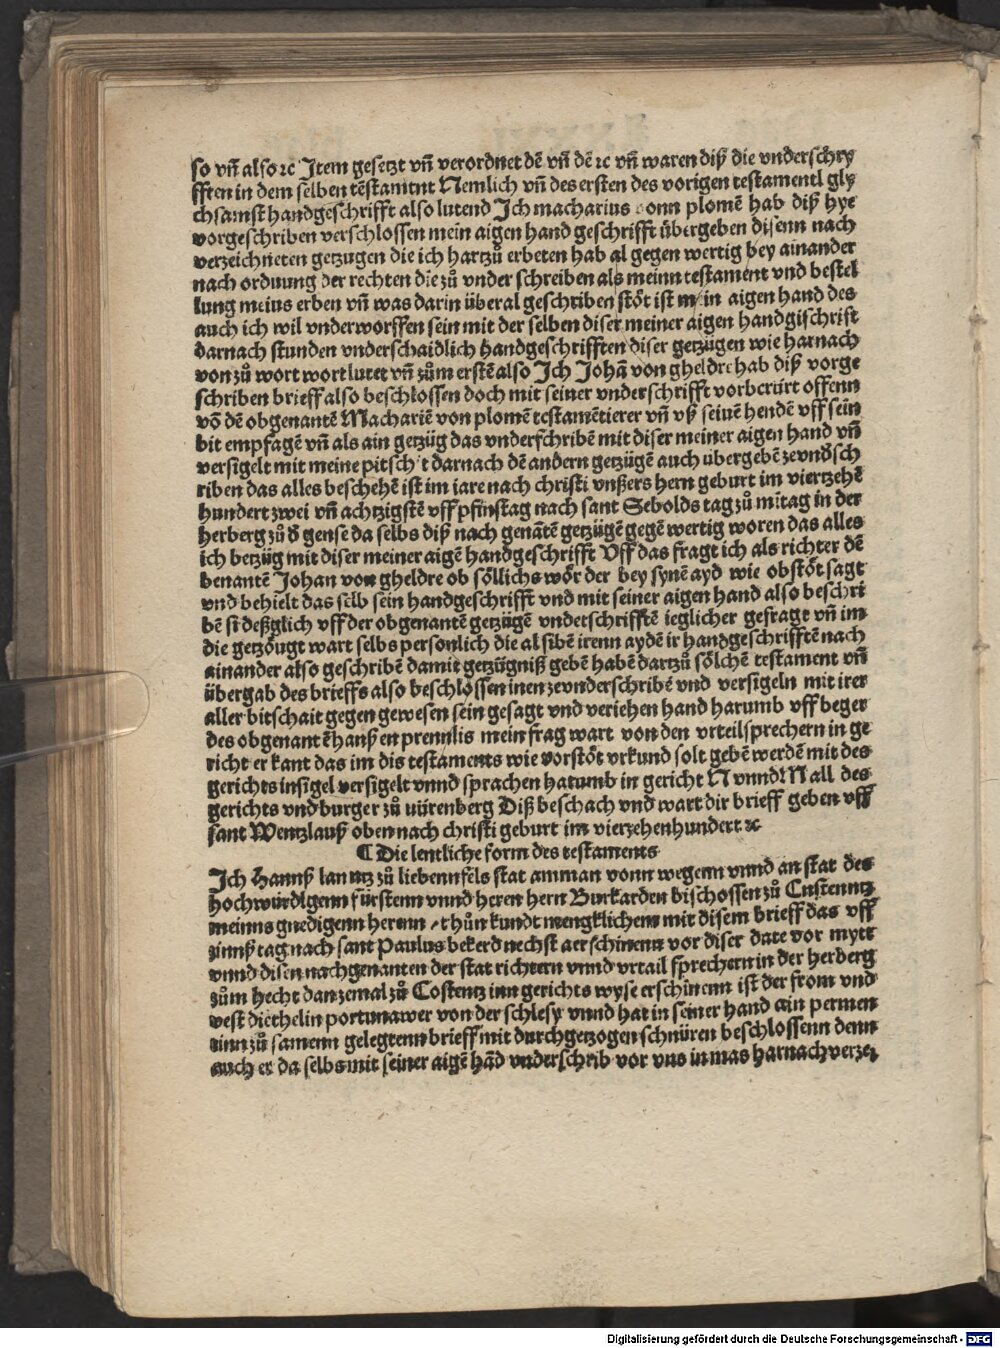 so vñ also ⁊c Item gesetzt vñ verordnet dẽ vñ dẽ ⁊c vñ waren diß die vnderschry
fften in dem selben tẽstamtnt Nemlich vñ des ersten des vorigen testamentl gly
chsamst handgeschrifft also lutend Ich macharius vonn plomẽ hab diß hye
vorgeschriben verschlossen mein aigen hand geschrifft übergeben disenn nach
verzeichneten getzugen die ich hartzů erbeten hab al gegen wertig bey ainander
nach ordnung der rechten die zů vnder schreiben als meinn testament vnd bestel
lung meius erben vñ was darin über al geschriben stöt ist mein aigen hand des
auch ich wil vnderworffen sein mit der selben diser meiner aigen handgischrift
darnach stunden vnderschaidlich handgeschrifften diser getzügen wie harnach
von zů wort wort lutet vñ zům erstẽ also Ich Johã von gheldre hab diß vorge
schriben brieff also beschlossen doch mit seiner vnderschrifft vorberürt offenn
võ dẽ obgenantẽ Machariẽ von plomẽ testamẽtierer vñ vß seinẽ hendẽ vff sein
bit empfagẽ vñ als ain getzüg das vnderschribẽ mit diser meiner aigen hand vñ
versigelt mit meine pitschit darnach dẽ andern getzügẽ auch übergebẽ zevndsch
riben das alles beschehẽ ist im iare nach christi vnßers hern geburt im viertzehẽ
hundert zwei vñ achtzigstẽ vff pfinstag nach sant Sebolds tag zů mitag in der
herberg zů d̃ gense da selbs diß nach genãtẽ getzügẽ gegẽ wertig woren das alles
ich betzüg mit diser meiner aigẽ handgeschrifft Vff das fragt ich als richter dẽ
benantẽ Johan von gheldre ob söllichs wör der bey synẽ ayd wie obstöt sagt
vnd behielt das selb sein handgeschrifft vnd mit seiner aigen hand also beschri
bẽ si deßglich vff der obgenantẽ getzügẽ vndetschrifftẽ ieglicher gefragt vñ im
die getzöugt wart selbs personlich die al sibẽ irenn aydẽ ir handgeschrifftẽ nach
ainander also geschribẽ damit getzügniß gebẽ habẽ dartzů sölchẽ testament vñ
übergab des brieffs also beschlossen inen zevnderschribẽ vnd versigeln mit irer
aller bitschait gegen gewesen sein gesagt vnd veriehen hand harumb vff beger
des obgenantẽ hanßen prennlis mein frag wart von den vrteilsprechern in ge
richt erkant das im dis testaments wie vorstöt vrkund solt gebẽ werdẽ mit des
gerichts insigel versigelt vnnd sprachen hatumb in gericht N vnnd N all des
gerichts vnd burger zů nürenberg Diß beschach vnd wart dir brieff geben vff
sant Wentzlauß oben nach christi geburt im vierzehenhundert ⁊c
¶ Die lentliche form des testaments
Ich Hannß lanntz zů liebennfels stat amman vonn wegenn vnnd an stat des
hochwürdlgenn fürstenn vnnd heren hern Burkarden bischossen zů Cnstenntz
meinns gnedigenn herenn thůn kundt mengklichem mit disem brieff das vff
zinnß tag nach sant Paulus bekerd nechst aerschinenn vor diser date vor mytt
vnnd disen nachgenanten der stat richtern vnnd vrtail sprechern in der herberg
zům hecht danzemal zů Costentz inn gerichts wyse erschinenn ist der from vnd
vest diethelin portunawer von der schlesy vnnd hat in seiner hand ain permen
tinn zů samenn gelegtenn brieff mit durchgetzogen schnüren beschlossenn denn
auch er da selbs mit seiner aigẽ hãd vnderschrib vor vns in mas harnach verzei
Digitalisierung gefördert durch die Deutsche Forschungsgemeinschaft - DFG